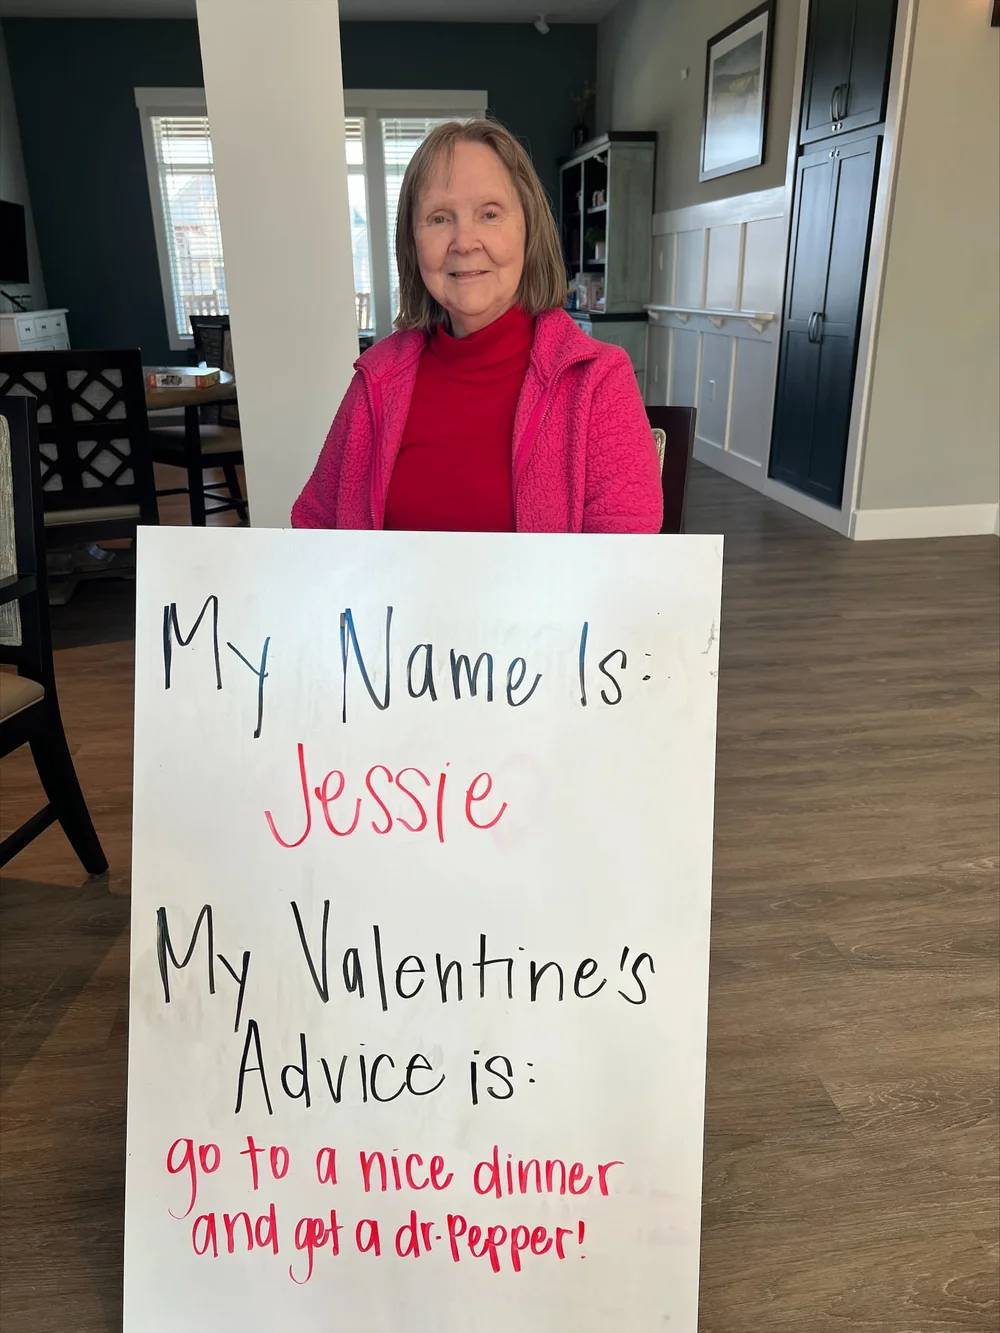 My Name Is:
Jessie
My Valentine's
Advice is:
go to a nice dinner
and get a dr. Pepper!